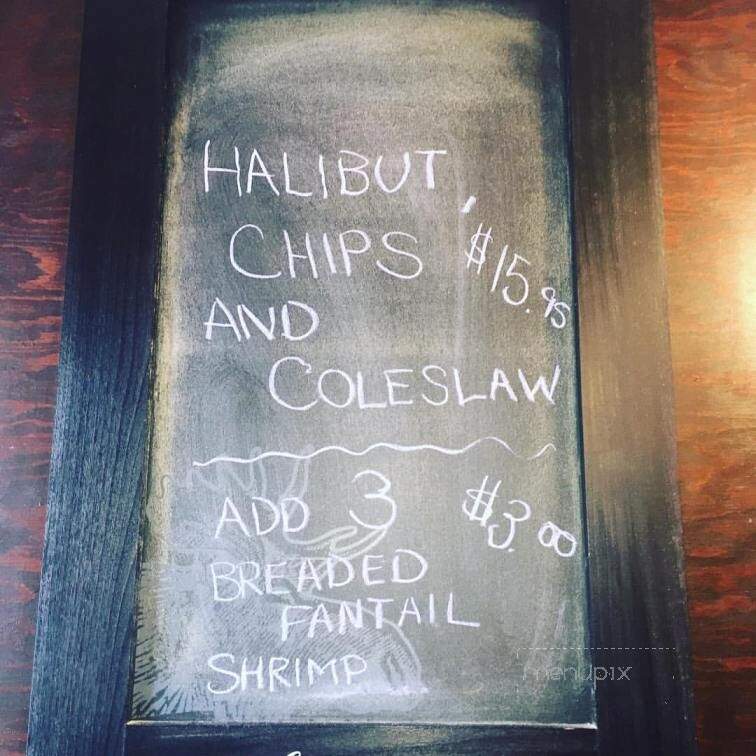 HALIBUT,
CHIPS $15.95
AND
COLESLAW
ADD 3 $3.00
BREADED
FANTAIL
SHRIMP
menupix